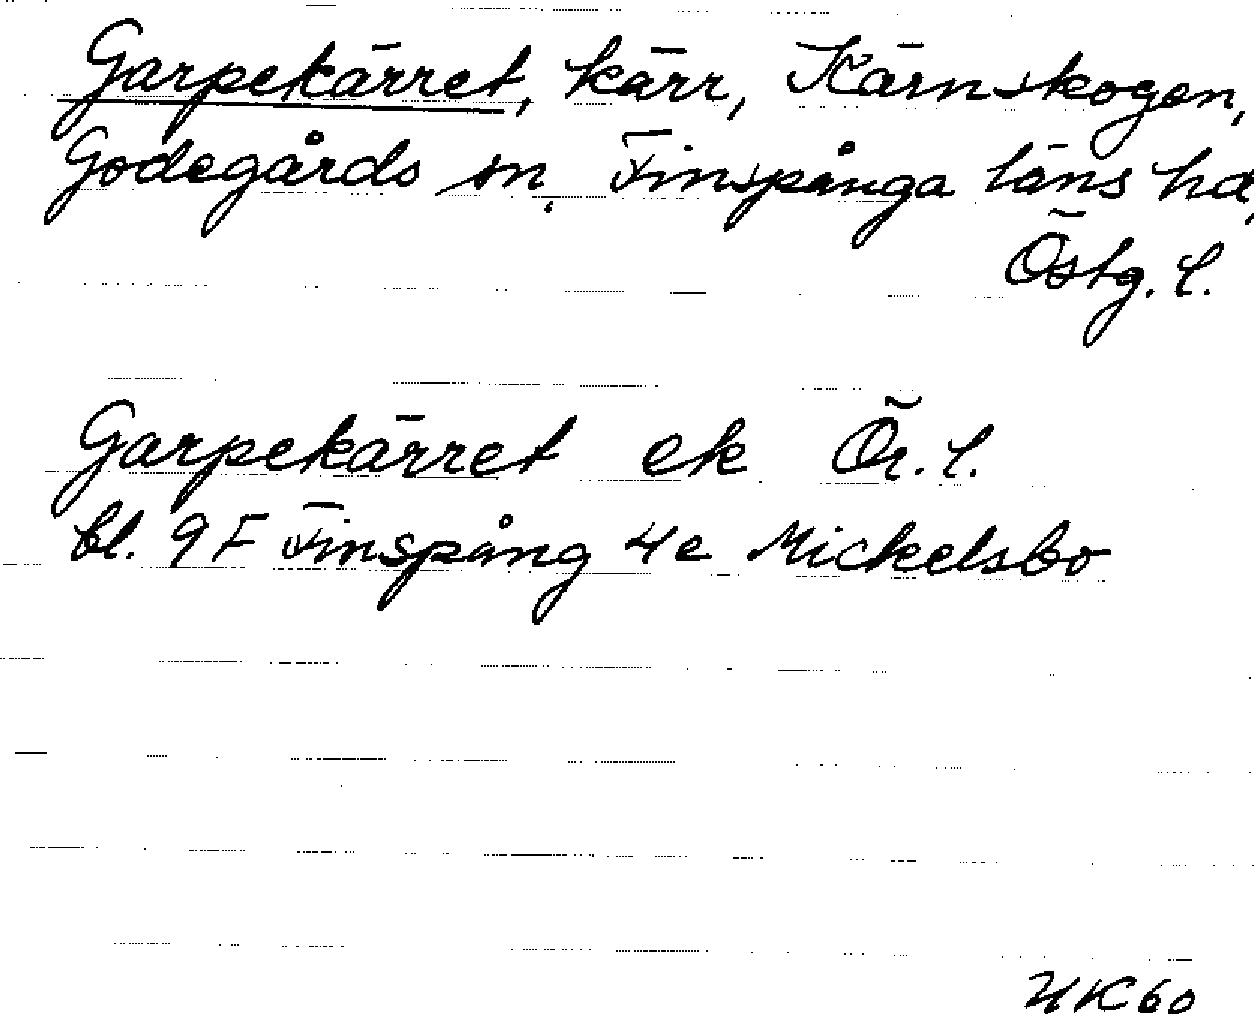 Garpekärret, kärr, Kärnskogen,
Godegårds sn, Finspånga läns hd,
Östg. l.
Garpekärret ek Ör. l.
bl. 9 F Finspång 4e Mickelsbo
HK60